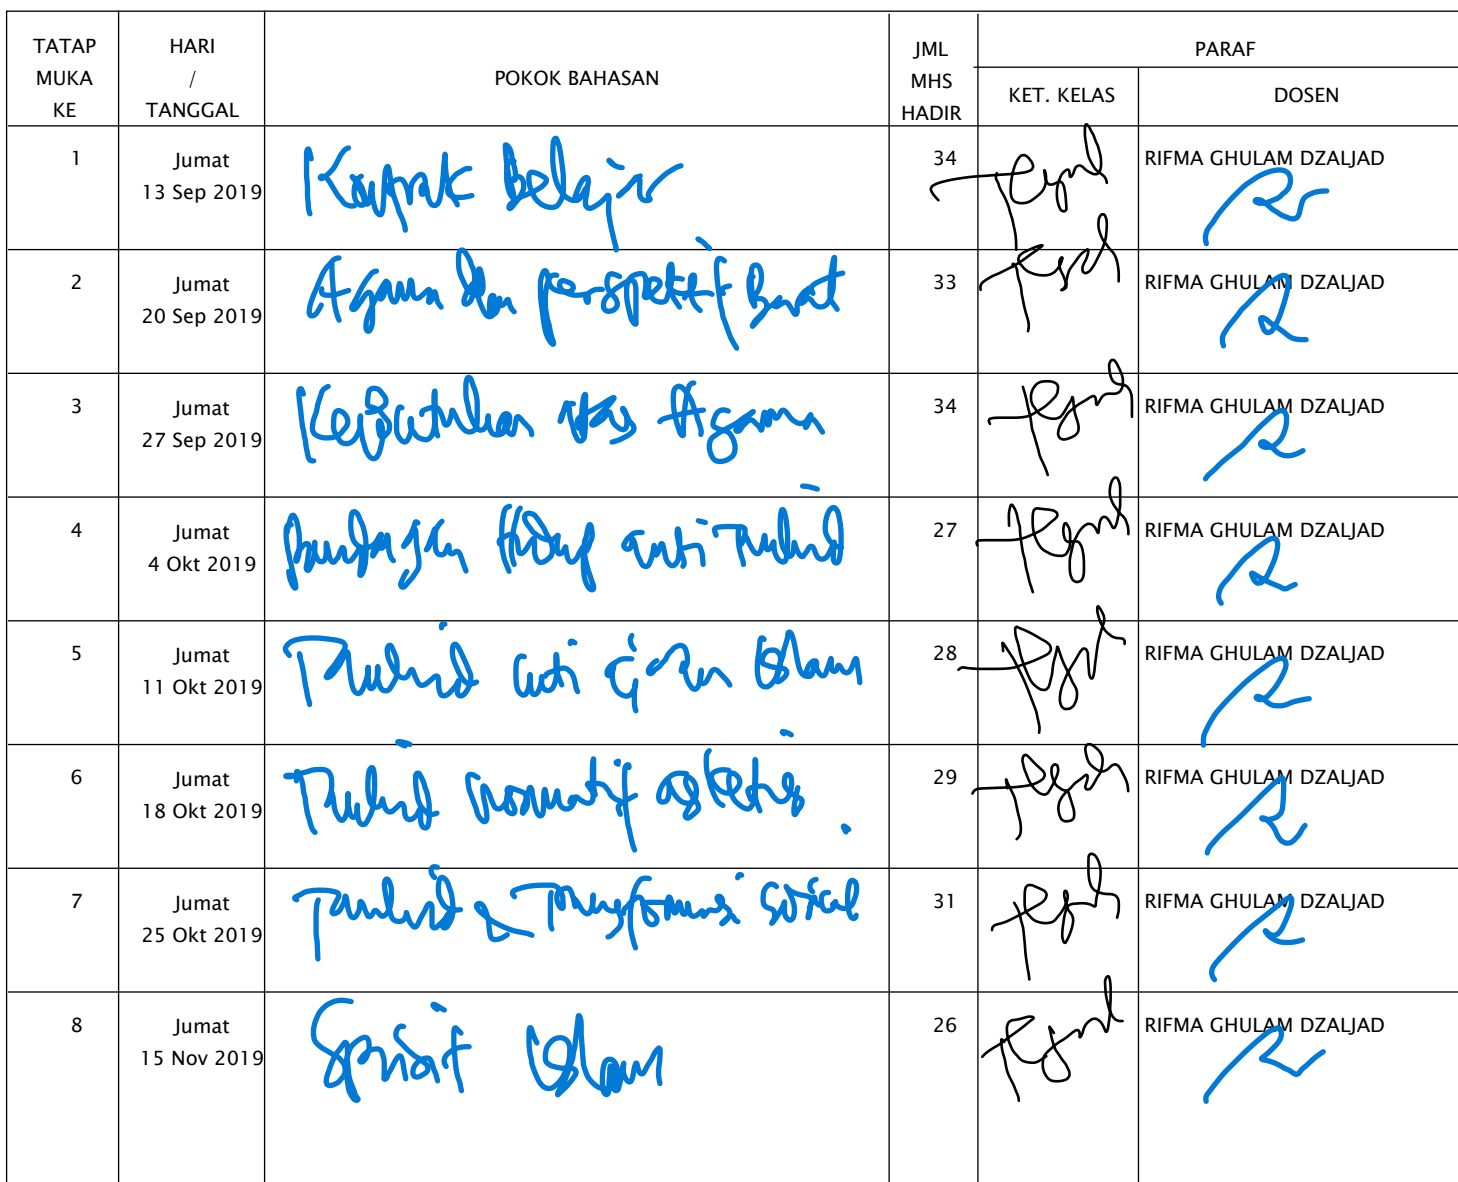 TATAP MUKA KE HARI / TANGGAL POKOK BAHASAN JML MHS HADIR PARAF
KET. KELAS DOSEN
1 Jumat 13 Sep 2019 Kontrak Belajar 34 RIFMA GHULAM DZALJAD
2 Jumat 20 Sep 2019 Agama dan perspektif Barat 33 RIFMA GHULAM DZALJAD
3 Jumat 27 Sep 2019 Kebutuhan atas Agama 34 RIFMA GHULAM DZALJAD
4 Jumat 4 Okt 2019 pandangan Hidup anti Tauhid 27 RIFMA GHULAM DZALJAD
5 Jumat 11 Okt 2019 Tauhid inti ajaran Islam 28 RIFMA GHULAM DZALJAD
6 Jumat 18 Okt 2019 Tauhid normatif asketis. 29 RIFMA GHULAM DZALJAD
7 Jumat 25 Okt 2019 Tauhid & Transformasi Sosial 31 RIFMA GHULAM DZALJAD
8 Jumat 15 Nov 2019 Spirit Islam 26 RIFMA GHULAM DZALJAD